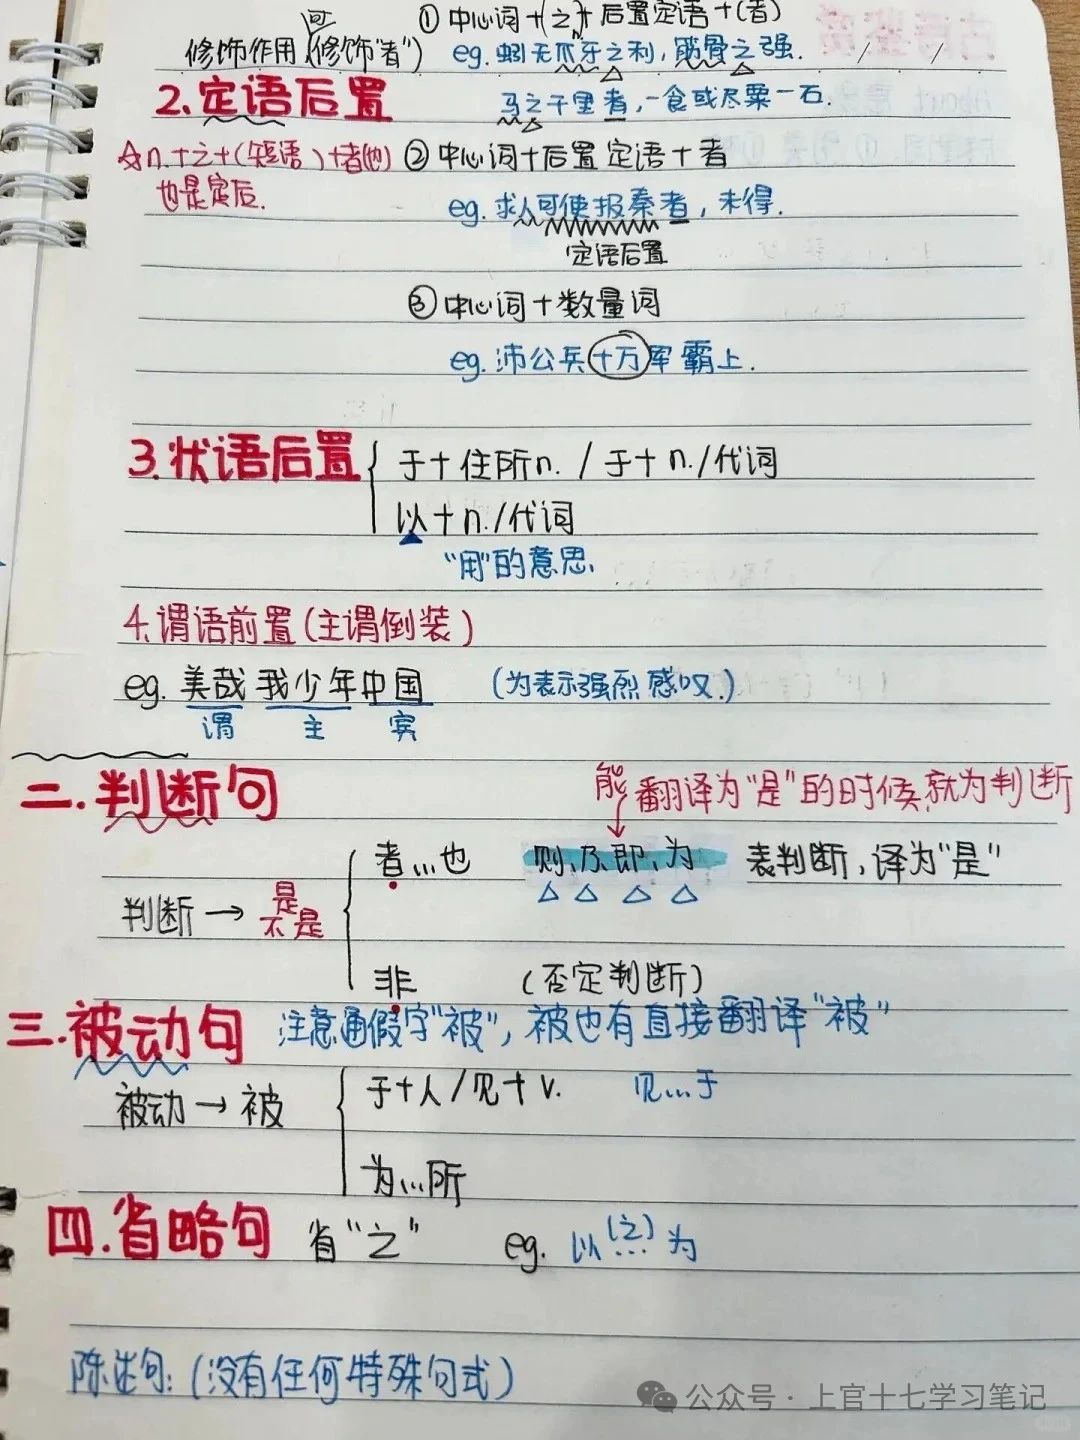 ① 中心词+(之)+后置定语+(者)
可
修饰作用(修饰"者") eg. 蚓无爪牙之利,筋骨之强.
2.定语后置 马之千里者,一食或尽粟一石.
☆n.+之+(短语)+者(也) ② 中心词+后置定语+者
也是定后.
eg. 求人可使报秦者,未得.
定语后置
③ 中心词+数量词
eg. 沛公兵十万军霸上.
3.状语后置 于+住所n. / 于+n./代词
以+n./代词
"用"的意思.
4.谓语前置(主谓倒装)
eg. 美哉我少年中国 (为表示强烈感叹.)
谓 主 宾
二.判断句 能翻译为"是"的时候,就为判断
者...也 则、乃、即、为 表判断,译为"是"
判断→是
不是
非 (否定判断)
三.被动句 注意通假字"被",被也有直接翻译"被"
被动→被 于+人/见+v. 见...于
为...所
四.省略句 省"之" eg. 以(之)为
陈述句:(没有任何特殊句式)
公众号·上官十七学习笔记